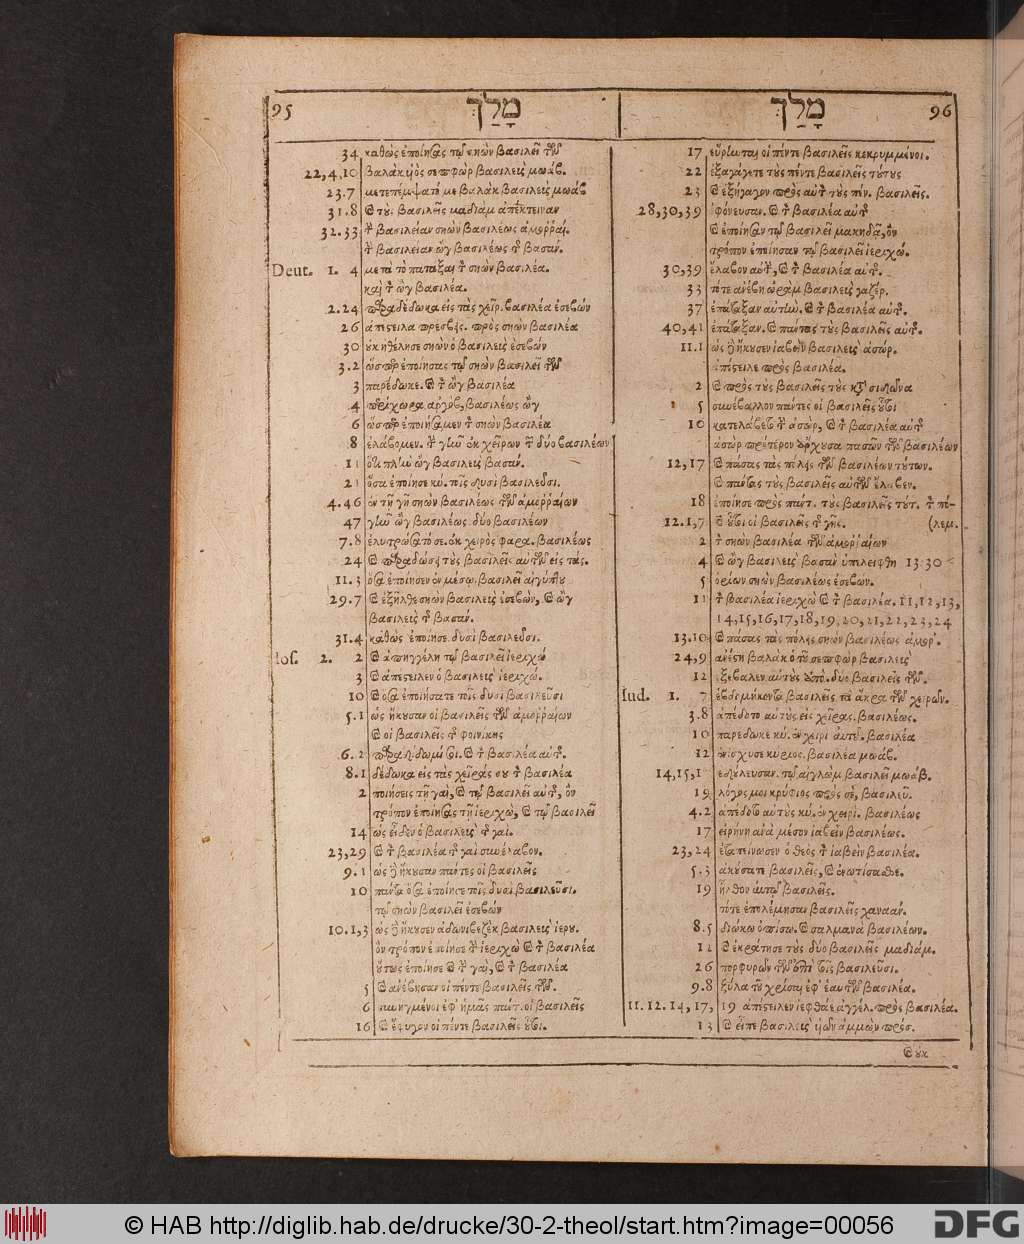 95 מָלַךְ
34 καθὼς ἐποίησας τῷ σηὼν βασιλεῖ τῶν
22,4,10 βαλὰκ υἱὸς σεπφὼρ βασιλεὺς μωάβ.
23.7 μετεπέμψατό με βαλὰκ βασιλεὺς μωὰβ
31.8 καὶ τοὺς βασιλεῖς μαδιὰμ ἀπέκτειναν
32.33 τὴν βασιλείαν σηὼν βασιλέως ἀμοῤῥαί.
τὴν βασιλείαν ὢγ βασιλέως τῆς βασάν.
Deut. 1. 4 μετὰ τὸ πατάξαι τὸν σηὼν βασιλέα.
καὶ τὸν ὢγ βασιλέα.
2.24 παραδέδωκα εἰς τὰς χεῖρ. βασιλέα ἐσεβὼν
26 ἀπέστειλα πρέσβεις. πρὸς σηὼν βασιλέα
30 οὐκ ἠθέλησε σηὼν ὁ βασιλεὺς ἐσεβὼν
3.2 ὥσπερ ἐποίησας τῷ σηὼν βασιλεῖ τῶν
3 παρέδωκε. καὶ τὸν ὢγ βασιλέα
4 περίχωρα ἀργόβ, βασιλέως ὢγ
6 ὥσπερ ἐποίησαμεν τὸν σηὼν βασιλέα
8 ἐλάβομεν. τὴν γῆν ἐκ χειρῶν τῶν δύο βασιλέων
11 ὅτι πλὴν ὢγ βασιλεὺς βασάν.
21 ὅσα ἐποίησε κύ. τοῖς δυσὶ βασιλεῦσι.
4.46 ἐν τῇ γῇ σηὼν βασιλέως τῶν ἀμοῤῥαίων
47 γῆν ὢγ βασιλέως. δύο βασιλέων
7.8 ἐλυτρώσατό σε. ἐκ χειρὸς φαρα. βασιλέως
24 καὶ παραδώσει τοὺς βασιλεῖς αὐτῶν εἰς τάς.
11.3 ὅσα ἐποίησεν ἐν μέσῳ. βασιλεῖ αἰγύπτου
29.7 καὶ ἐξῆλθε σηὼν βασιλεὺς ἐσεβὼν, καὶ ὢγ
βασιλεὺς τῆς βασάν.
31.4 καθὼς ἐποίησε δυσὶ βασιλεῦσι.
Ios. 2. 2 καὶ ἀπηγγέλη τῷ βασιλεῖ ἱεριχώ
3 καὶ ἀπέστειλεν ὁ βασιλεὺς ἱεριχώ.
10 καὶ ὅσα ἐποιήσατε τοῖς δυσὶ βασιλεῦσι
5.1 ὡς ἤκουσαν οἱ βασιλεῖς τῶν ἀμοῤῥαίων
καὶ οἱ βασιλεῖς τῆς φοινίκης
6.2 παραδίδωμί σοι. καὶ τὸν βασιλέα αὐτῆς.
8.1 δέδωκα εἰς τὰς χεῖράς σου τὸν βασιλέα
2 ποιήσεις τῇ γαὶ, καὶ τῷ βασιλεῖ αὐτῆς, ὃν
τρόπον ἐποίησας τῇ ἱεριχὼ, καὶ τῷ βασιλεῖ
14 ὡς εἶδεν ὁ βασιλεὺς τῆς γαί.
23,29 καὶ τὸν βασιλέα τῆς γαὶ συνέλαβον.
9.1 ὡς δὲ ἤκουσαν πάντες οἱ βασιλεῖς
10 πάντα ὅσα ἐποίησε τοῖς δυσὶ βασιλεῦσι.
τῷ σηὼν βασιλεῖ ἐσεβὼν
10.1,3 ὡς δὲ ἤκουσεν ἀδωνιβεζὲκ βασιλεὺς ἱερου.
ὃν τρόπον ἐποίησε τὴν ἱεριχὼ καὶ τὸν βασιλέα
οὕτως ἐποίησε καὶ τὴν γαὶ, καὶ τὸν βασιλέα
5 καὶ ἀνέβησαν οἱ πέντε βασιλεῖς τῶν.
6 συνηγμένοι ἐφ' ἡμᾶς πάντ. οἱ βασιλεῖς
16 καὶ ἔφυγον οἱ πέντε βασιλεῖς οὗτοι.
מָלַךְ 96
17 εὕρηνται οἱ πέντε βασιλεῖς κεκρυμμένοι.
22 ἐξαγάγετε τοὺς πέντε βασιλεῖς τούτους
23 καὶ ἐξήγαγον πρὸς αὐτὸν τοὺς πέν. βασιλεῖς.
28,30,39 ἐφόνευσαν. καὶ τὸν βασιλέα αὐτῆς
καὶ ἐποίησαν τῷ βασιλεῖ μακηδὰ, ὃν
τρόπον ἐποίησαν τῷ βασιλεῖ ἱεριχώ.
30,39 ἔλαβον αὐτὴν, καὶ τὸν βασιλέα αὐτῆς.
33 τότε ἀνέβη ὡρὰμ βασιλεὺς γαζέρ.
37 ἐπάταξαν αὐτὴν. καὶ τὸν βασιλέα αὐτῆς.
40,41 ἐπάταξαν. καὶ πάντας τοὺς βασιλεῖς αὐτῆς.
11.1 ὡς δὲ ἤκουσεν ἰαβεὶν βασιλεὺς ἀσώρ.
ἀπέστειλε πρὸς βασιλέα.
2 καὶ πρὸς τοὺς βασιλεῖς τοὺς κατὰ σιδῶνα
5 συνέβαλλον πάντες οἱ βασιλεῖς οὗτοι
10 κατελάβετο τὴν ἀσώρ, καὶ τὸν βασιλέα αὐτῆς
ἀσὼρ πρότερον ἄρχουσα πασῶν τῶν βασιλέων
12,17 καὶ πάσας τὰς πόλεις τῶν βασιλέων τούτων.
καὶ πάντας τοὺς βασιλεῖς αὐτῶν ἔλαβεν.
18 ἐποίησε πρὸς πάντ. τοὺς βασιλεῖς τούτ. τὸν πό-
12.1,7 καὶ οὗτοι οἱ βασιλεῖς τῆς γῆς. (λεμ.
2 τὸν σηὼν βασιλέα τῶν ἀμοῤῥαίων
4 καὶ ὢγ βασιλεὺς βασὰν ὑπελείφθη 13.30
5 ὁρίων σηὼν βασιλέως ἐσεβών.
11 τὸν βασιλέα ἱεριχὼ καὶ τὸν βασιλέα. 11,12,13,
14,15,16,17,18,19,20,21,22,23,24
13.10 καὶ πάσας τὰς πόλεις σηὼν βασιλέως ἀμορ.
24,9 ἀνέστη βαλὰκ ὁ τοῦ σεπφὼρ βασιλεὺς
12 ἐξέβαλεν αὐτοὺς ἀπὸ. δύο βασιλεῖς τῶν.
Iud. 1. 7 ἑβδομήκοντα βασιλεῖς τὰ ἄκρα τῶν χειρῶν.
3.8 ἀπέδοτο αὐτοὺς εἰς χεῖρας. βασιλέως.
10 παρέδωκε κύ. ἐν χειρὶ αὐτοῦ. βασιλέα
12 ἐνίσχυσε κύριος. βασιλέα μωάβ.
14,15,1 ἐδούλευσαν. τῷ αἰγλὼμ βασιλεῖ μωάβ.
19 λόγος μοι κρύφιος πρὸς σὲ, βασιλεῦ.
4.2 ἀπέδοτο αὐτοὺς κύ. ἐν χειρὶ. βασιλέως
17 εἰρήνη ἀνὰ μέσον ἰαβεὶν βασιλέως.
23,24 ἐταπείνωσεν ὁ θεὸς τὸν ἰαβεὶν βασιλέα.
5.3 ἀκούσατε βασιλεῖς, καὶ ἐνωτίσασθε.
19 ἦλθον αὐτῶν βασιλεῖς.
τότε ἐπολέμησαν βασιλεῖς χαναάν.
8.5 διώκω ὀπίσω. καὶ σαλμανὰ βασιλέων.
12 καὶ ἐκράτησε τοὺς δύο βασιλεῖς μαδιάμ.
26 πορφυρῶν τῶν ἐπὶ τοῖς βασιλεῦσι.
9.8 ξύλα τοῦ χρίσαι ἐφ' ἑαυτῶν βασιλέα.
11.12.14,17,19 ἀπέστειλεν ἰεφθάε ἀγγέλ. πρὸς βασιλέα.
13 καὶ εἶπε βασιλεὺς υἱῶν ἀμμὼν πρός.
καὶ οὐκ
© HAB http://diglib.hab.de/drucke/30-2-theol/start.htm?image=00056
DFG